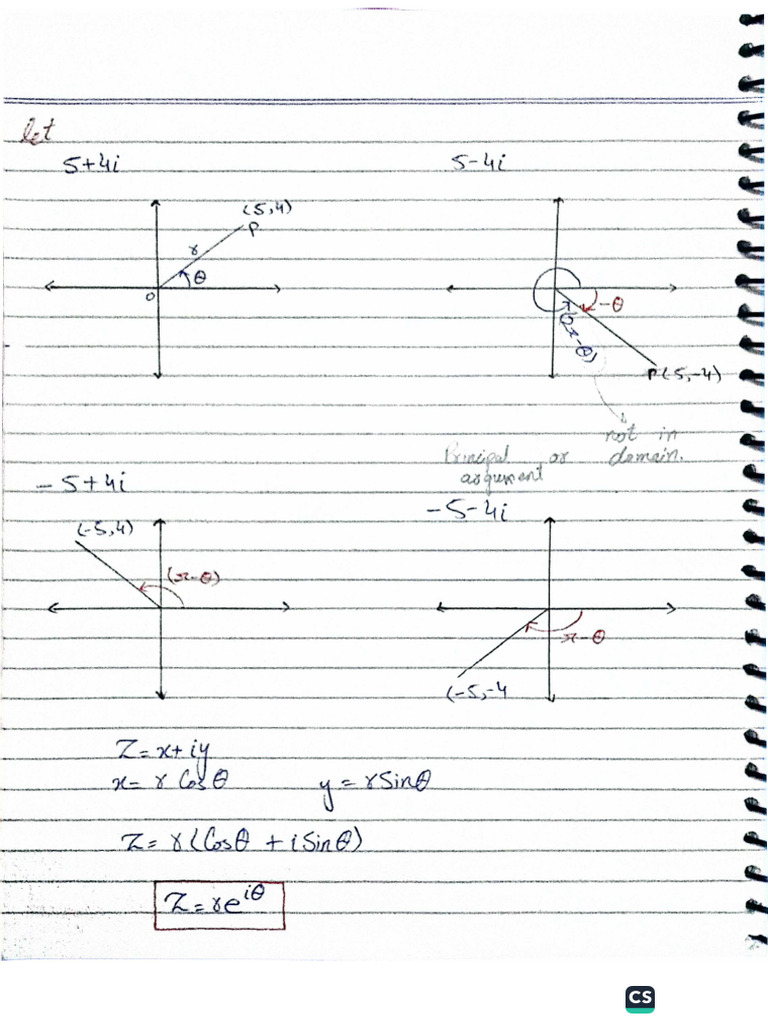 let
5+4i
(5,4)
P
r
θ
O
5-4i
-θ
(2π-θ)
P(5,-4)
not in
Principal or domain.
argument
-5+4i
(-5,4)
(π-θ)
-5-4i
π-θ
(-5,-4
Z=x+iy
x= r Cosθ y = rSinθ
Z= r(Cosθ + iSinθ)
Z=re^iθ
CS